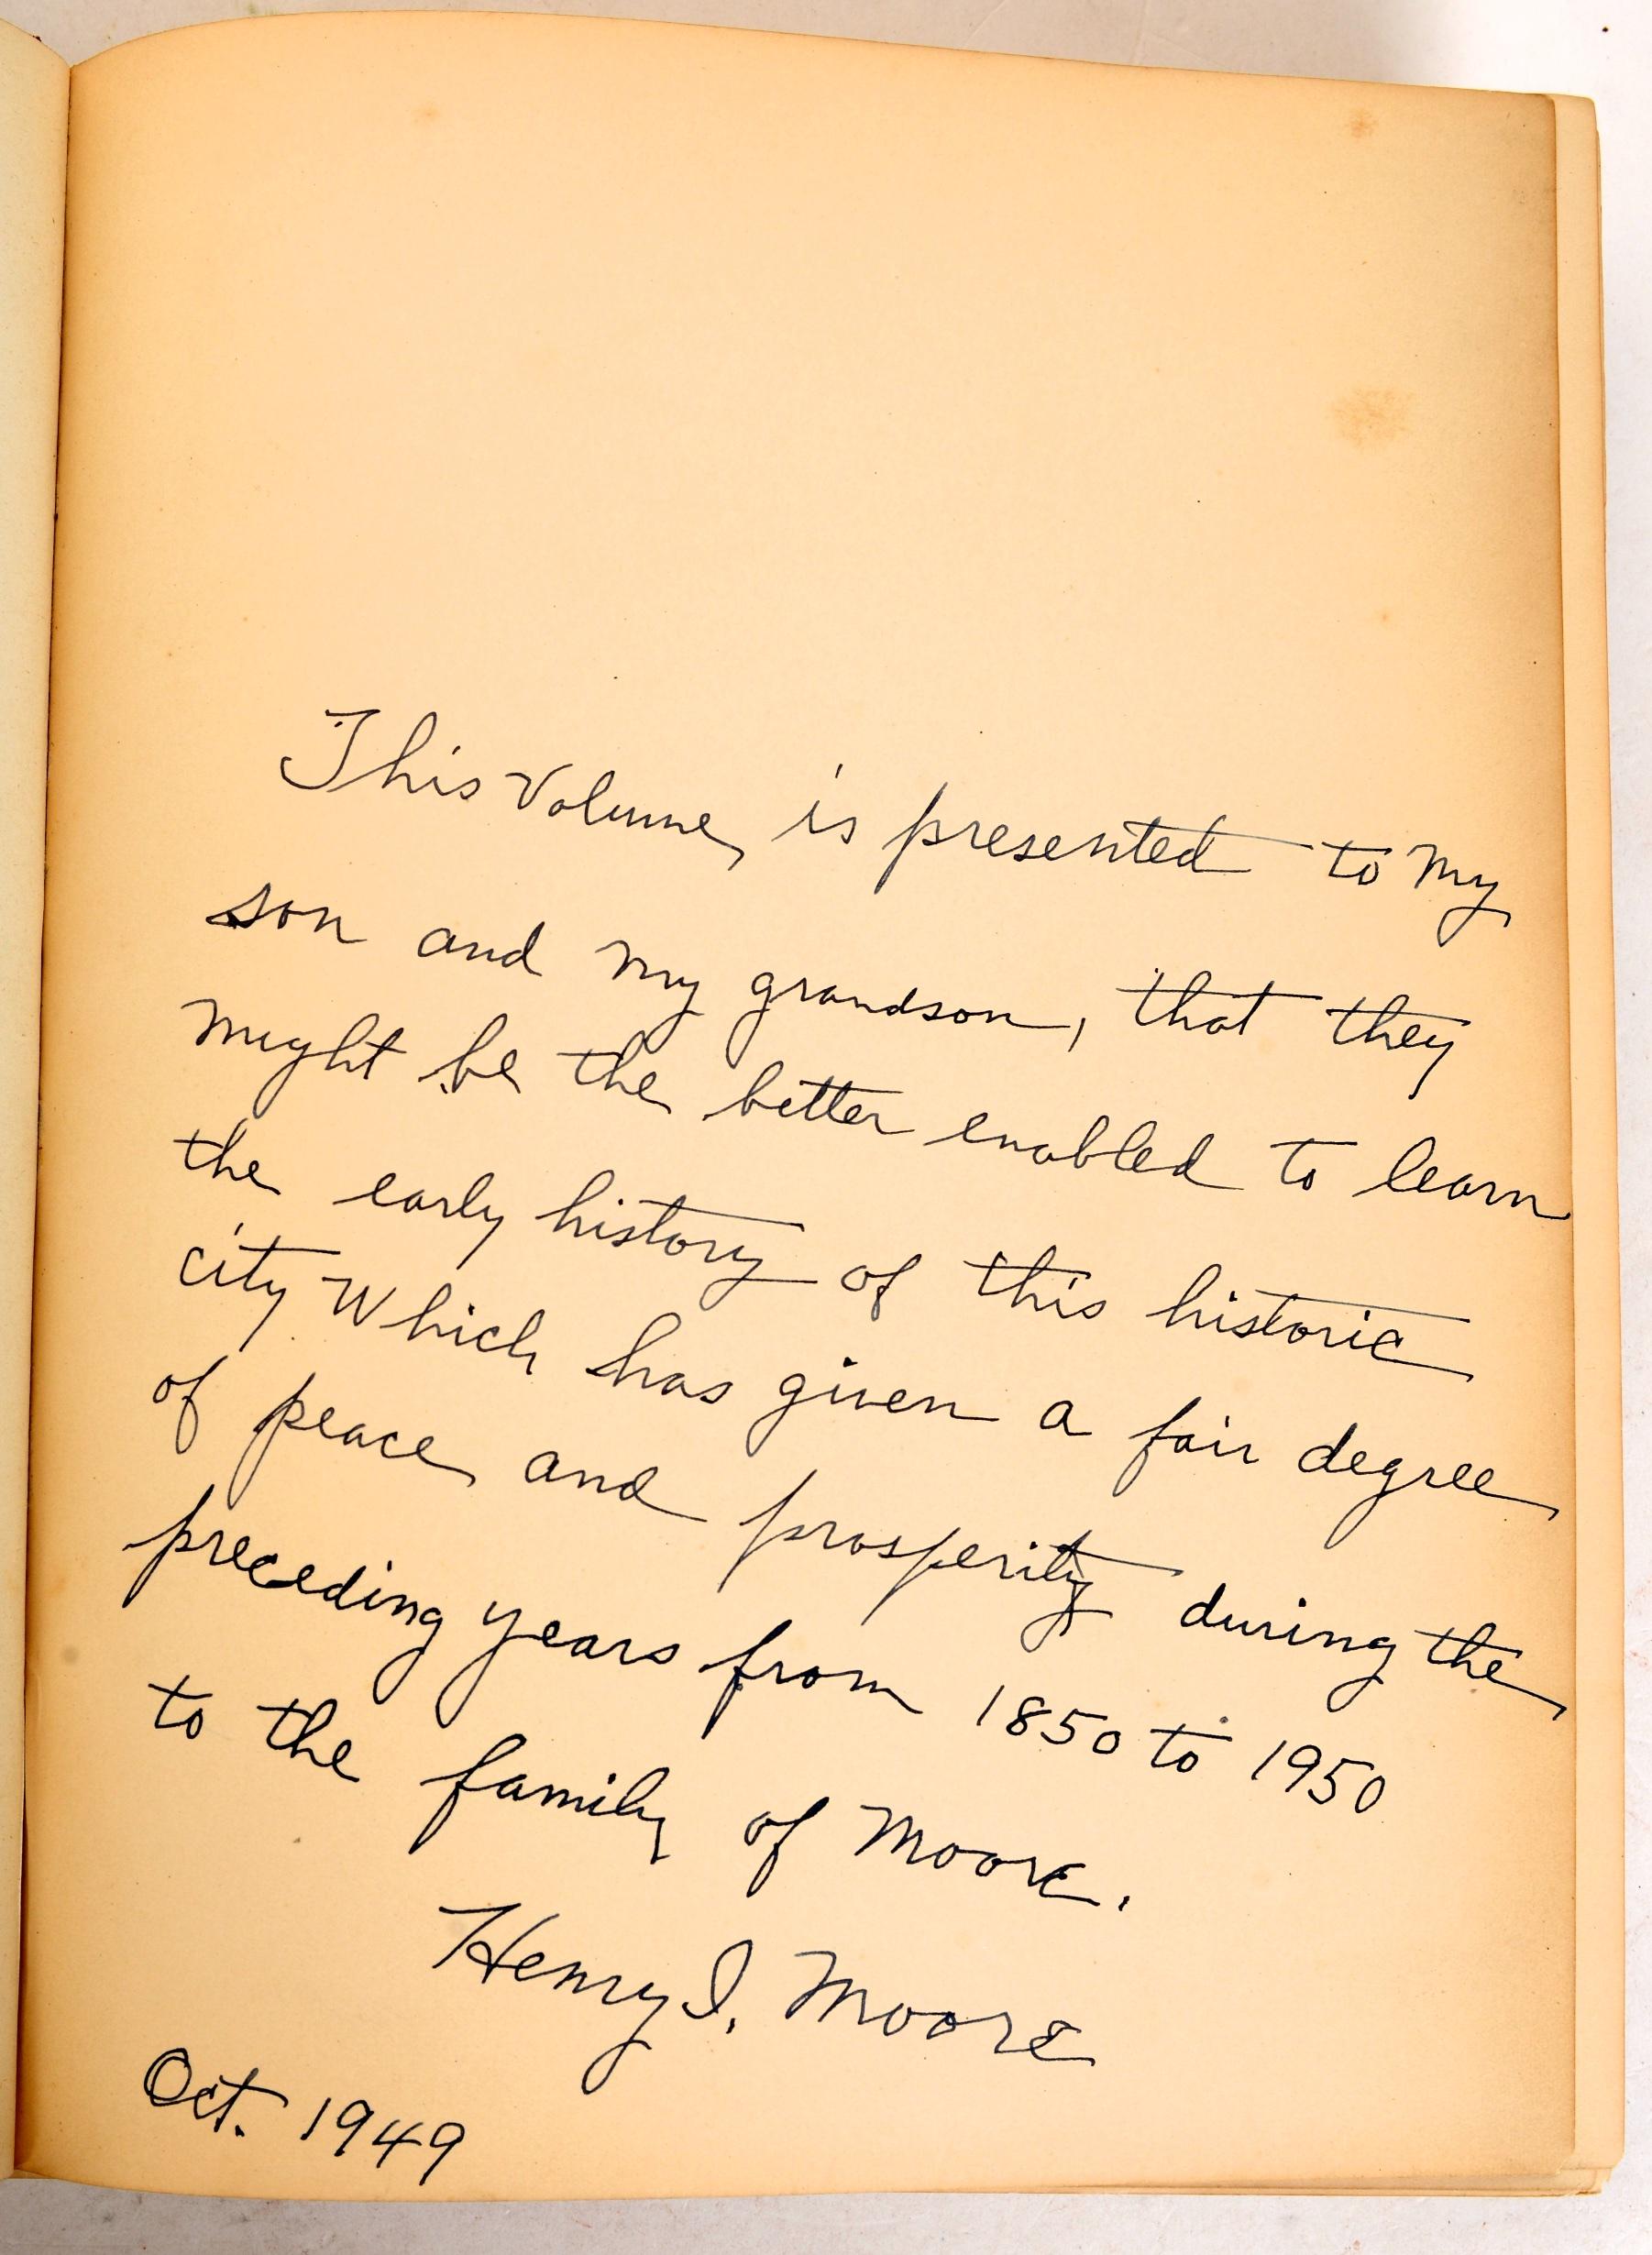 This Volume is presented to my
son and my grandson, that they
might be the better enabled to learn
the early history of this historic
city Which has given a fair degree
of peace and prosperity during the
preceding years from 1850 to 1950
to the family of Moore.
Henry I. Moore
Oct. 1949